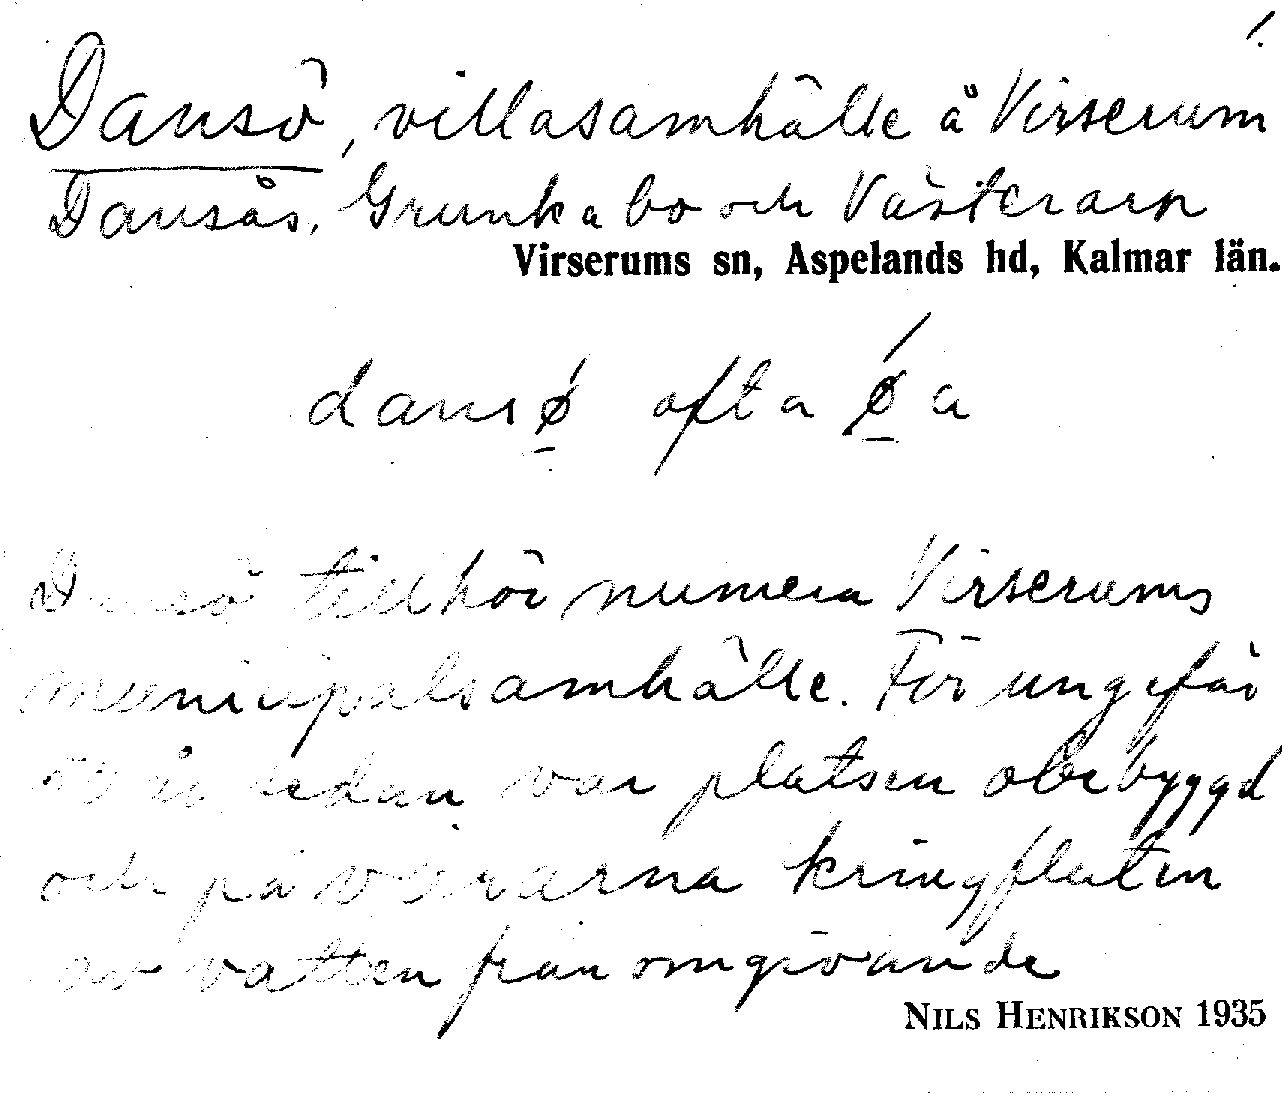 1.
Dansö, villasamhälle å Virserum
Dansås, Grunkabo och Västerarp
Virserums sn, Aspelands hd, Kalmar län.
dansǿ ofta ǿa
Dansö tillhör numera Virserums
municipalsamhälle. För ungefär
50 år sedan var platsen obebyggd
och på vårarna kringfluten
av vatten från omgivande
NILS HENRIKSON 1935